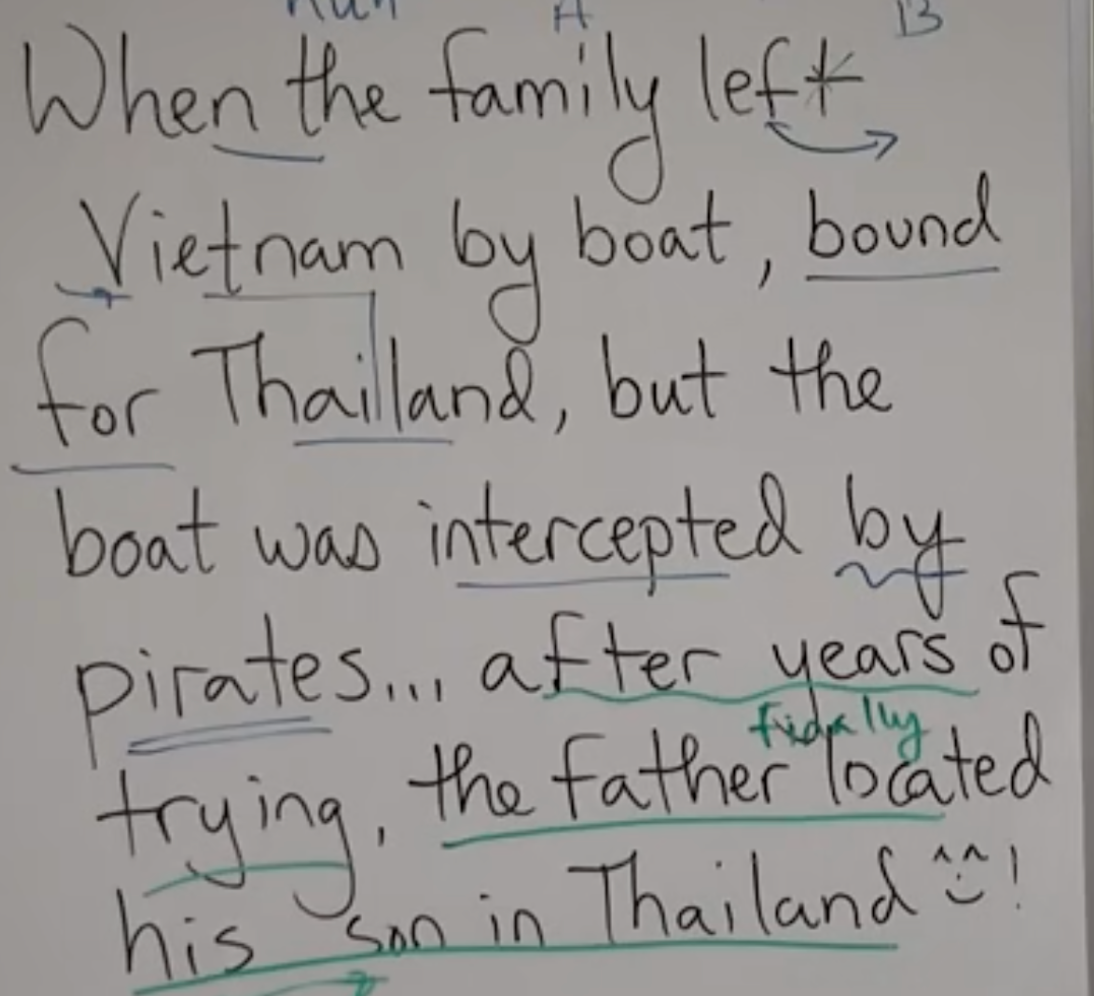 A B
When the family left
Vietnam by boat, bound
for Thailand, but the
boat was intercepted by
pirates... after years of
finally
trying, the father located
his son in Thailand ^^!